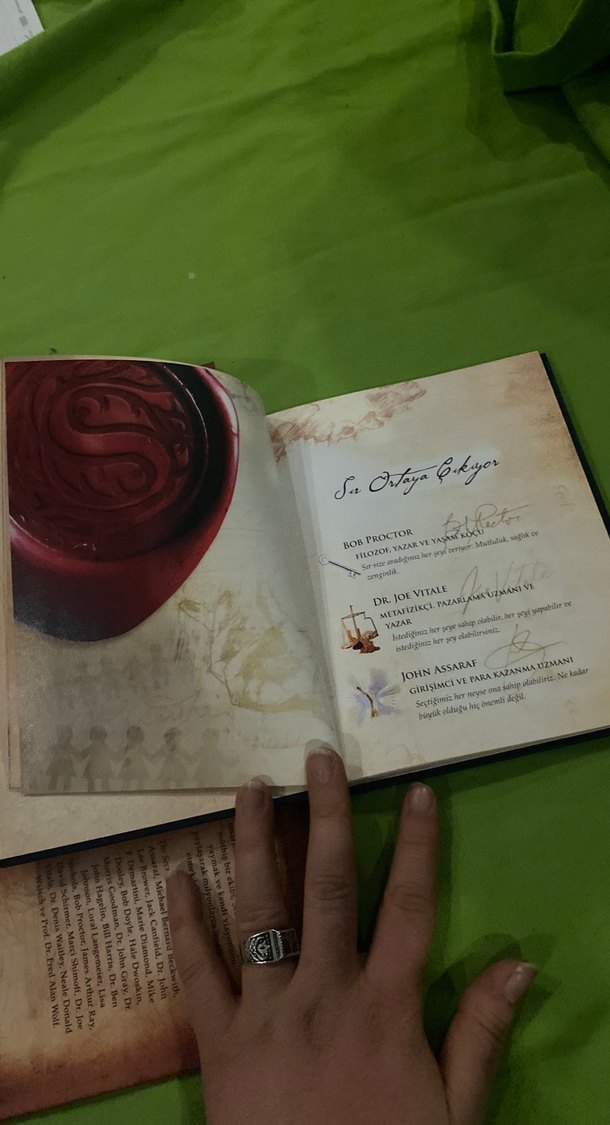 Sır Ortaya Çıkıyor
BOB PROCTOR
FİLOZOF, YAZAR VE YAŞAM KOÇU
Sır size aradığınız her şeyi veriyor: Mutluluk, sağlık ve
zenginlik.
DR. JOE VITALE
METAFİZİKÇİ, PAZARLAMA UZMANI VE
YAZAR
İstediğiniz her şeye sahip olabilir, her şeyi yapabilir ve
istediğiniz her şey olabilirsiniz.
JOHN ASSARAF
GİRİŞİMCİ VE PARA KAZANMA UZMANI
Seçtiğimiz her neyse ona sahip olabiliriz. Ne kadar
büyük olduğu hiç önemli değil.
S
müthiş bir ekibi,
yaymak ve kendi
paylaşarak
Assaraf, Michael Bernard Beckwith,
Lee Brower, Jack Canfield, Dr. John
F. Demartini, Marie Diamond, Mike
Dooley, Bob Doyle, Hale Dwoskin,
Morris Goodman, Dr. John Gray, Dr.
John Hagelin, Bill Harris, Dr. Ben
Johnson, Loral Langemeier, Lisa
Nichols, Bob Proctor, James Arthur Ray,
David Schirmer, Marci Shimoff, Dr. Joe
Vitale, Dr. Denis Waitley, Neale Donald
Walsch ve Prof. Dr. Fred Alan Wolf.